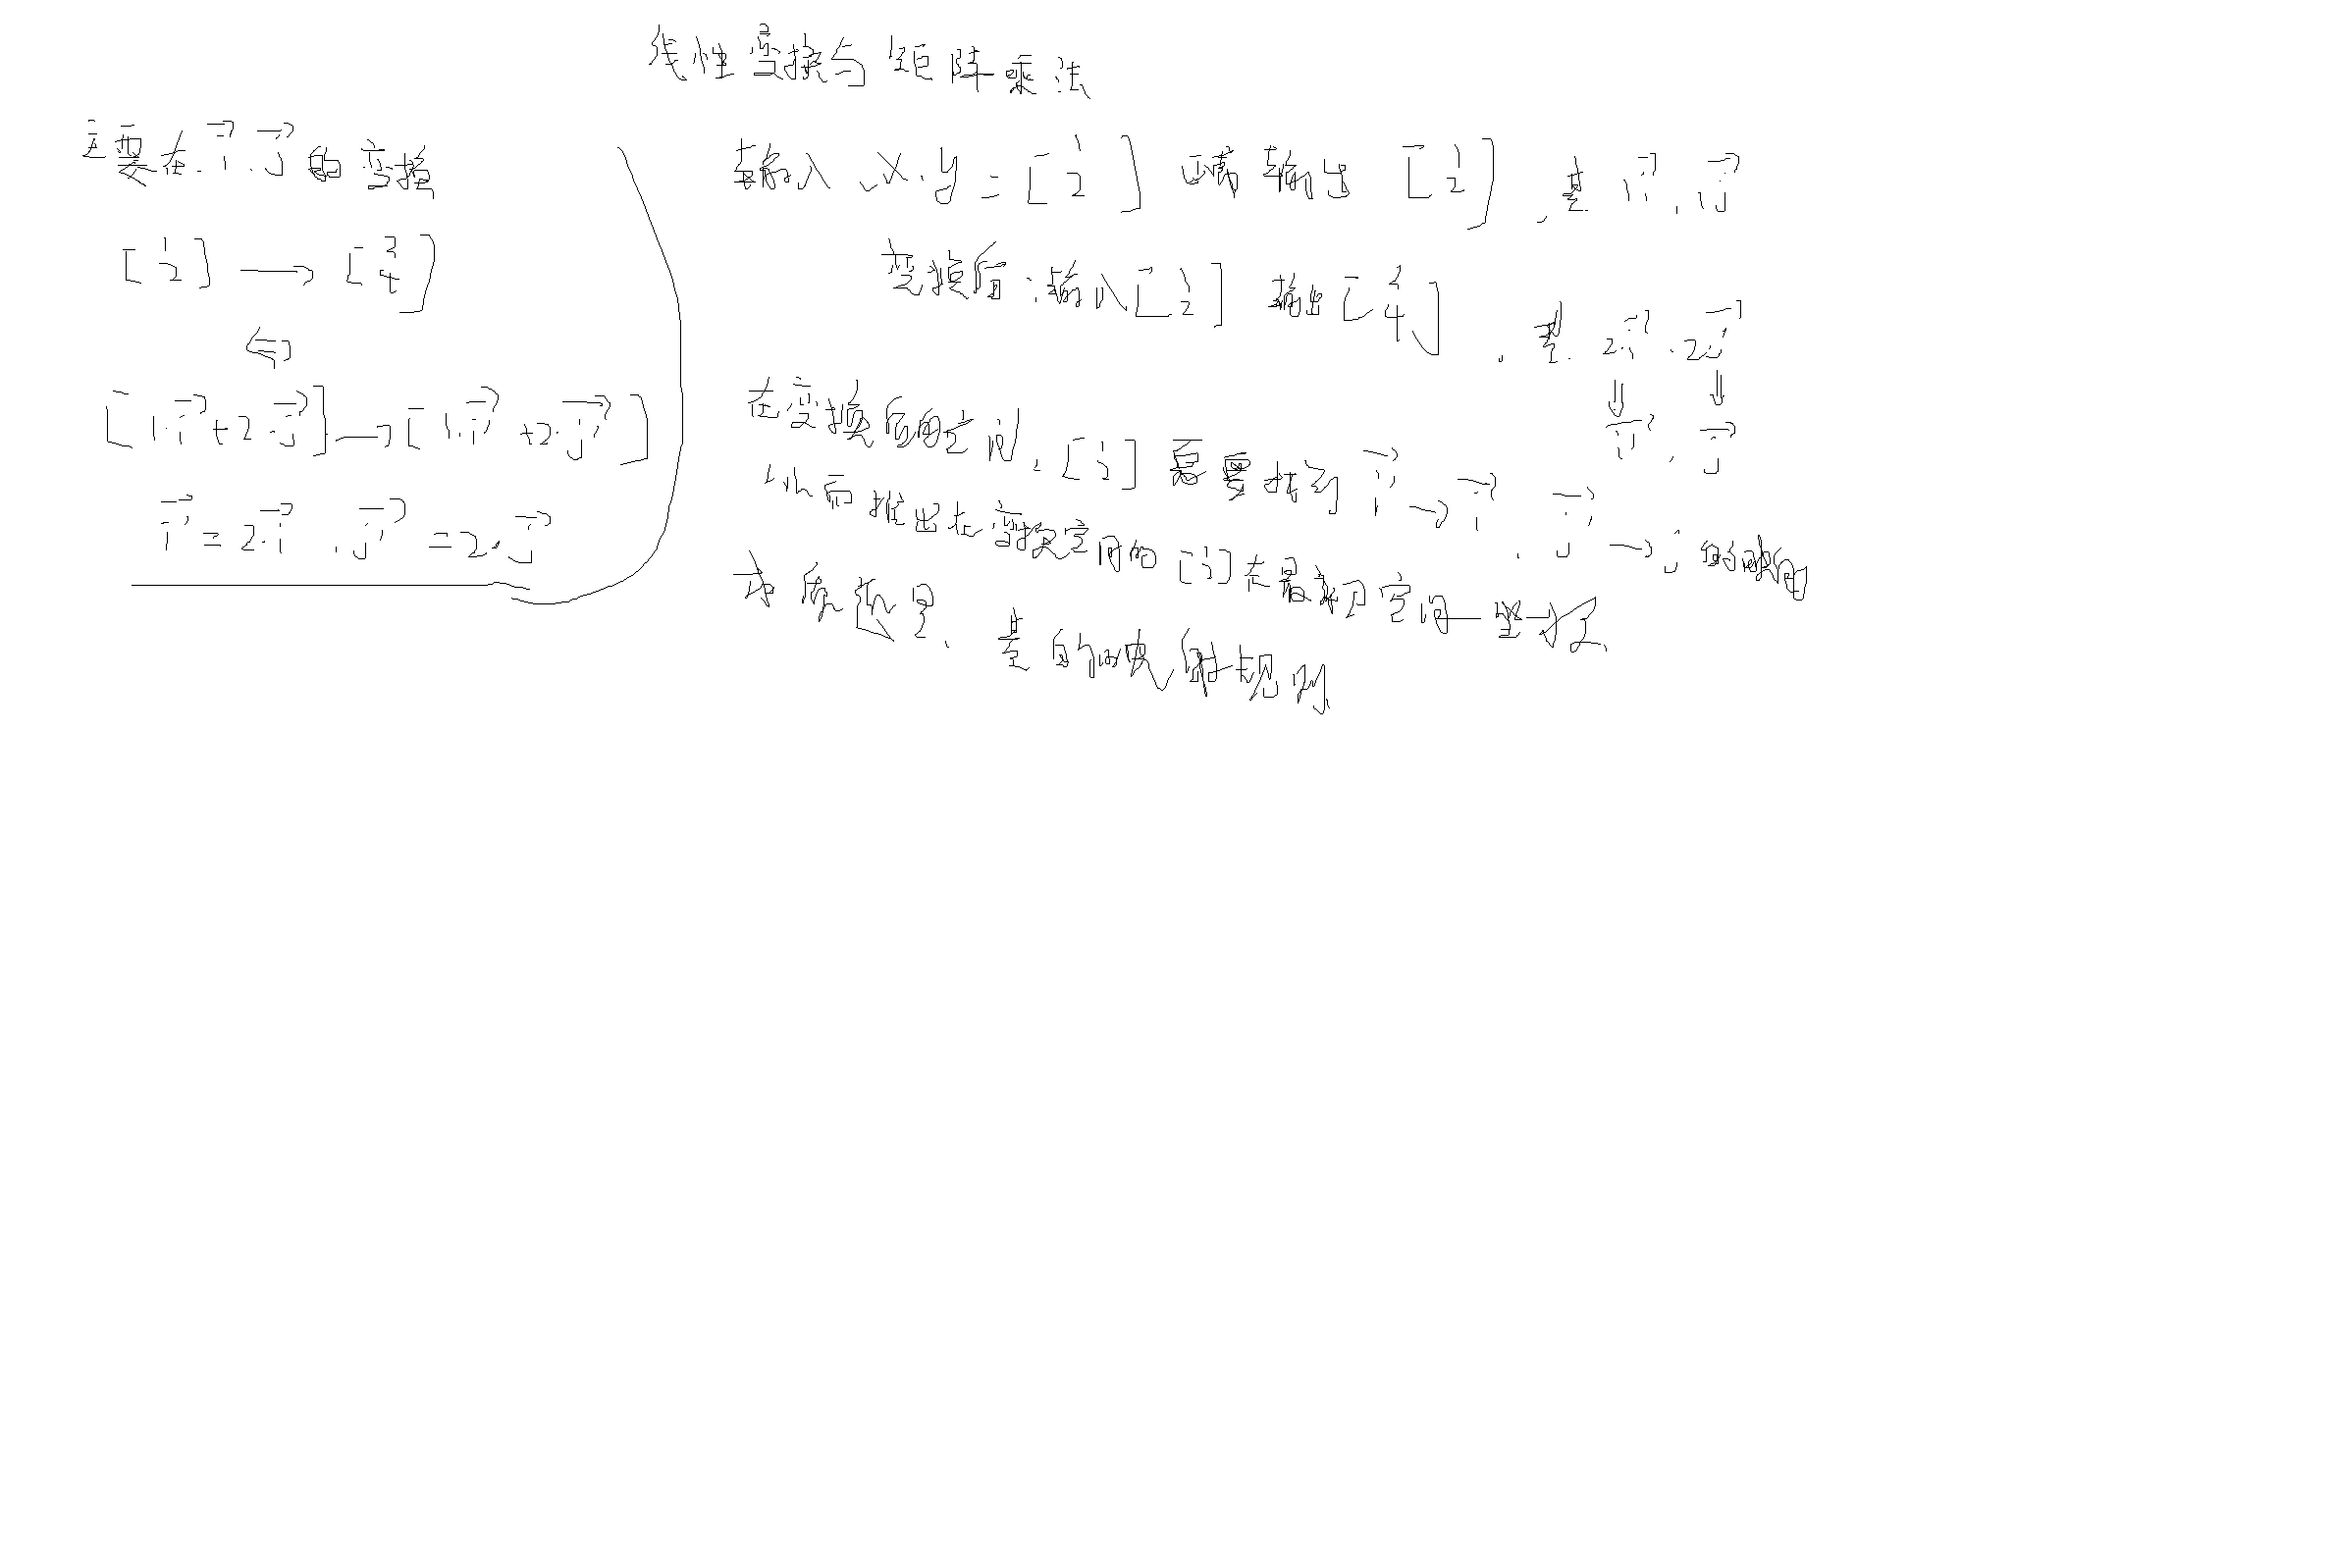 线性变换与矩阵乘法
主要在 i⃗ . j⃗ 的变换
[1 2] → [2 4]
⇔
[1·i⃗ + 2·j⃗] → [1·i⃗' + 2·j⃗']
i⃗' = 2·i⃗ , j⃗' = 2·j⃗
输入 x.y = [1 2] 正常输出 [1 2] , 基 1i⃗ , 1j⃗
变换后 : 输入 [1 2] 输出 [2 4] , 基 2·i⃗ . 2j⃗
⇓ ⇓
i⃗' , j⃗'
在变换后的空间 , [1 2] 要找到 i⃗' → i⃗ , j⃗' → j⃗ 的
从而推出在变换空间的 [1 2] 在最初空间 坐标
本质是 , 基的映射规则